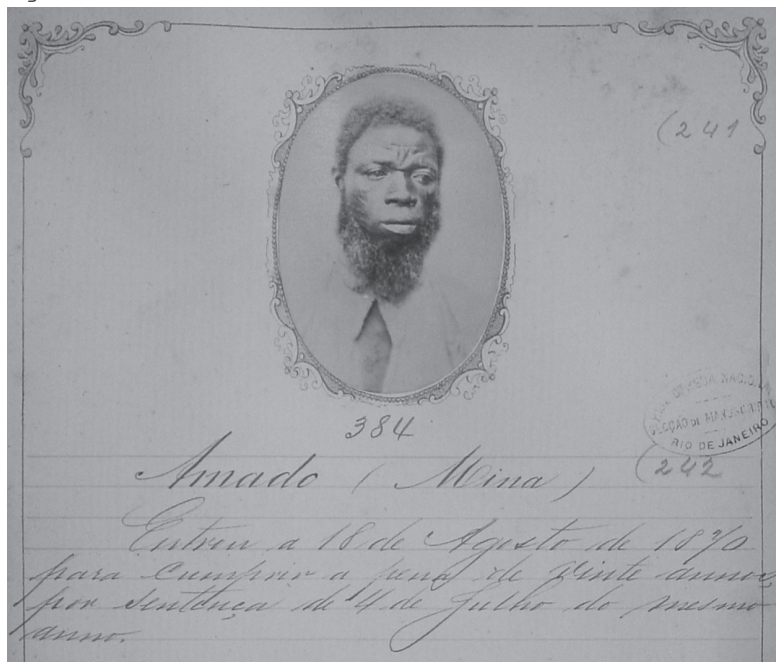 (241
384
Amado (Mina)
BIBLIOTHECA NACIONAL
SECÇÃO DE MANUSCRIPTOS
RIO DE JANEIRO
(242
Entrou a 18 de Agosto de 1870
para cumprir a pena de vinte annos,
por sentença de 4 de Julho do mesmo
anno.